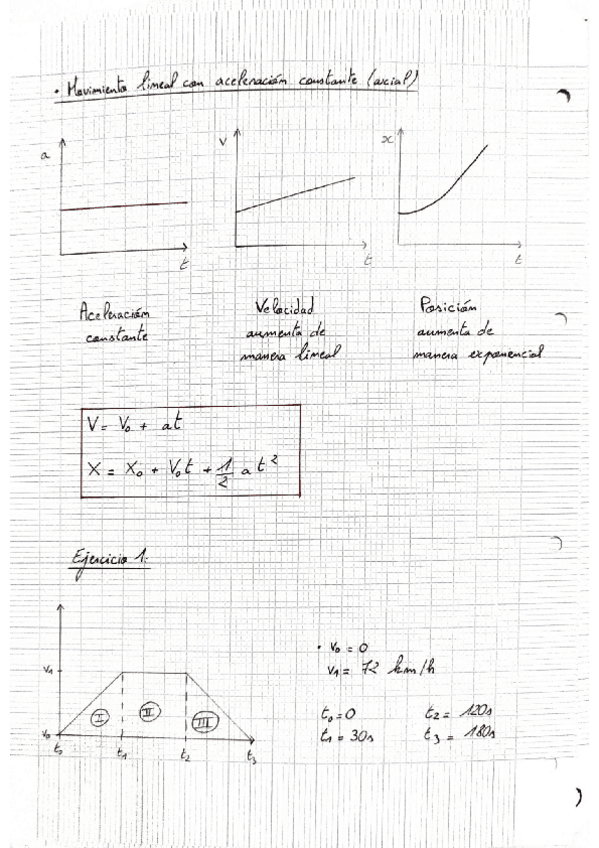 • Movimiento lineal con aceleración constante (axial)
a
t
v
t
x
t
Aceleración
constante
Velocidad
aumenta de
manera lineal
Posición
aumenta de
manera exponencial
V = V₀ + at
X = X₀ + V₀t + 1/2 a t²
Ejercicio 1:
V₁
V₀
I
II
III
t₀
t₁
t₂
t₃
• V₀ = 0
V₁ = 72 km/h
t₀ = 0
t₂ = 120s
t₁ = 30s
t₃ = 180s